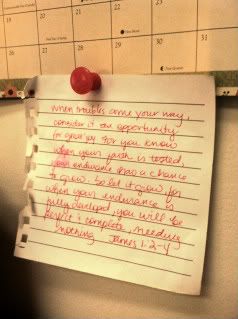 22 23 24
29 30 31
When troubles come your way,
consider it an opportunity
for great joy. For you know
when your faith is tested,
your endurance has a chance
to grow. So let it grow, for
when your endurance is
fully developed, you will be
perfect & complete, needing
nothing. James 1:2-4